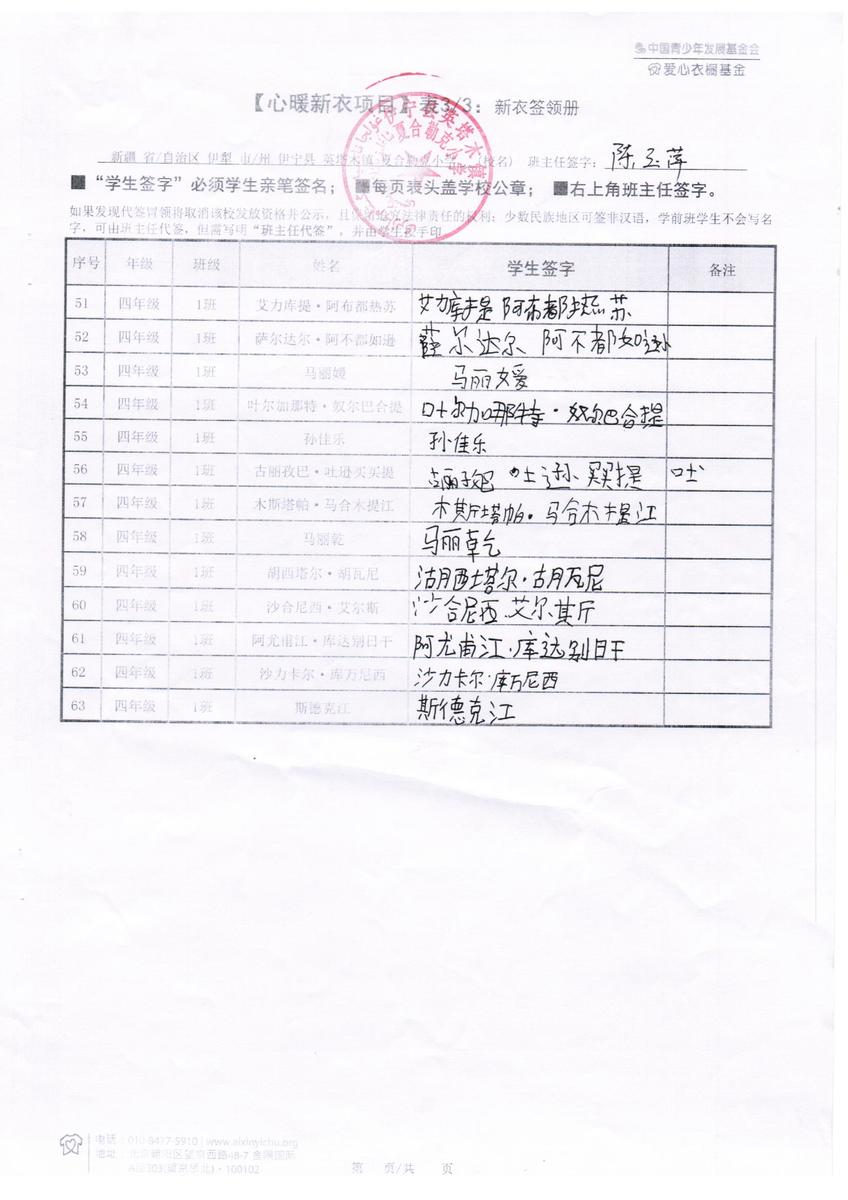 中国青少年发展基金会
爱心衣橱基金
【心暖新衣项目】表3/3：新衣签领册
新疆 省/自治区 伊犁 市/州 伊宁县 英塔木镇 夏合勒克小学 （校名） 班主任签字：陈玉萍
■“学生签字”必须学生亲笔签名； ■每页表头盖学校公章； ■右上角班主任签字。
如果发现代签冒领将取消该校发放资格并公示，且保留追究法律责任的权利；少数民族地区可签非汉语，学前班学生不会写名
字，可由班主任代签，但需写明“班主任代签”，并由学生按手印
序号 年级 班级 姓名 学生签字 备注
51 四年级 1班 艾力库提·阿布都热苏 艾力库提 阿布都热苏
52 四年级 1班 萨尔达尔·阿不都如逊 萨尔达尔 阿不都如逊
53 四年级 1班 马丽媛 马丽媛
54 四年级 1班 叶尔加那特·奴尔巴合提 叶尔加那特·奴尔巴合提
55 四年级 1班 孙佳乐 孙佳乐
56 四年级 1班 古丽孜巴·吐逊买买提 古丽孜巴 吐逊买买提 吐
57 四年级 1班 木斯塔帕·马合木提江 木斯塔帕·马合木提江
58 四年级 1班 马丽乾 马丽乾
59 四年级 1班 胡西塔尔·胡瓦尼 胡西塔尔·胡瓦尼
60 四年级 1班 沙合尼西·艾尔斯 沙合尼西·艾尔斯
61 四年级 1班 阿尤甫江·库达别日干 阿尤甫江·库达别日干
62 四年级 1班 沙力卡尔·库万尼西 沙力卡尔·库万尼西
63 四年级 1班 斯德克江 斯德克江
电话：010-8477-5910 | www.aixinyichu.org
地址：北京朝阳区望京西路48-7 金隅国际
A座303(望京华北)·100102
第 页/共 页